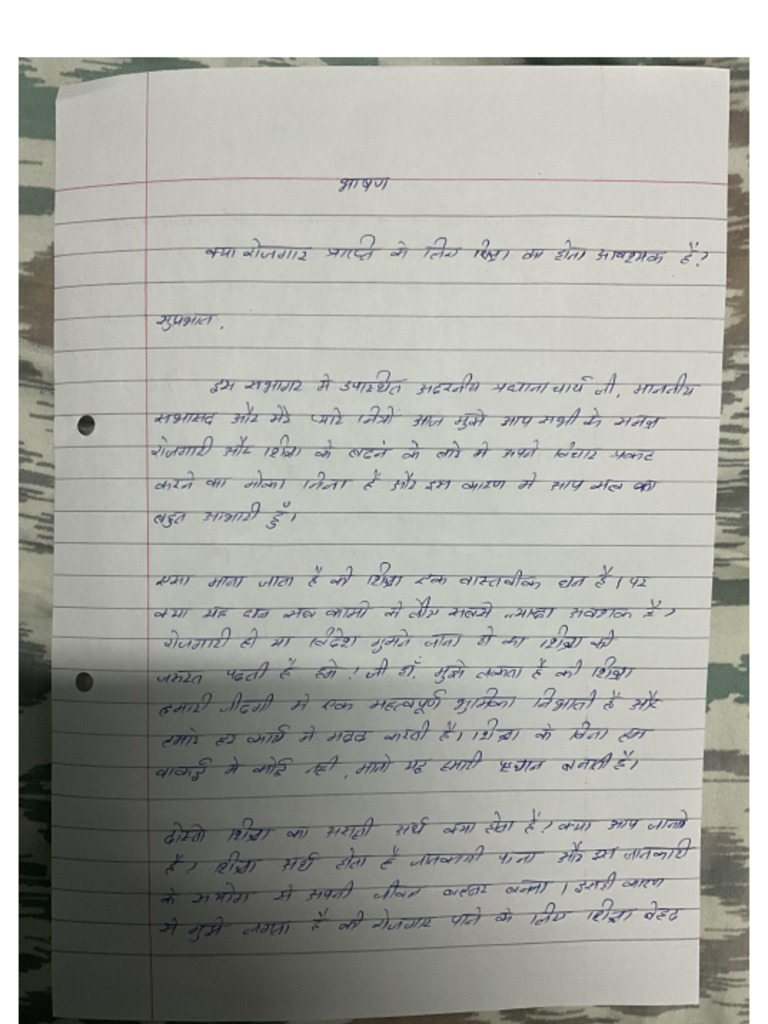 भाषण
क्या रोजगार प्राप्ति के लिए शिक्षा का होना आवश्यक है?
सुप्रभात,
इस सभागर मे उपास्थित अदरनीय प्रधानाचार्य जी, माननीय
सभासद और मेरे प्यारे मित्रो आज मुझे आप सभी के समक्ष
रोजगारी और शिक्षा के बढने के बारे मे अपने विचार प्रकट
करने का मोका मिला है और इस कारण मे आप सब का
बहुत आभारी हुँ।
एसा माना जाता है की शिक्षा एक वास्तवीक धन है। पर
क्या यह धन सब कामो के लीए सबसे ज्यादा अवशक है?
रोजगारी हो या विदेश गुमने जाना हो का शिक्षा की
जरुरत पढती है हमे? जी हाँ, मुझे लगता है की शिक्षा
हमारी जीदगी मे एक महत्वपूर्ण भुमिका निभाती है और
हमारे हर कार्य मे मदद करती है। शिक्षा के बिना हम
वाकई मे कोई नही, मानो यह हमारी पहचान बनाती है।
दोस्तो शिक्षा का असली अर्थ क्या होता है? क्या आप जानते
है? शिक्षा अर्थ होता है जानकारी पाना और इस जानकारी
के सयोग से अपनी जीवन बहतर बनाना। इसी कारण
से मुझे लगता है की रोजगार पाने के लिए शिक्षा बेहद